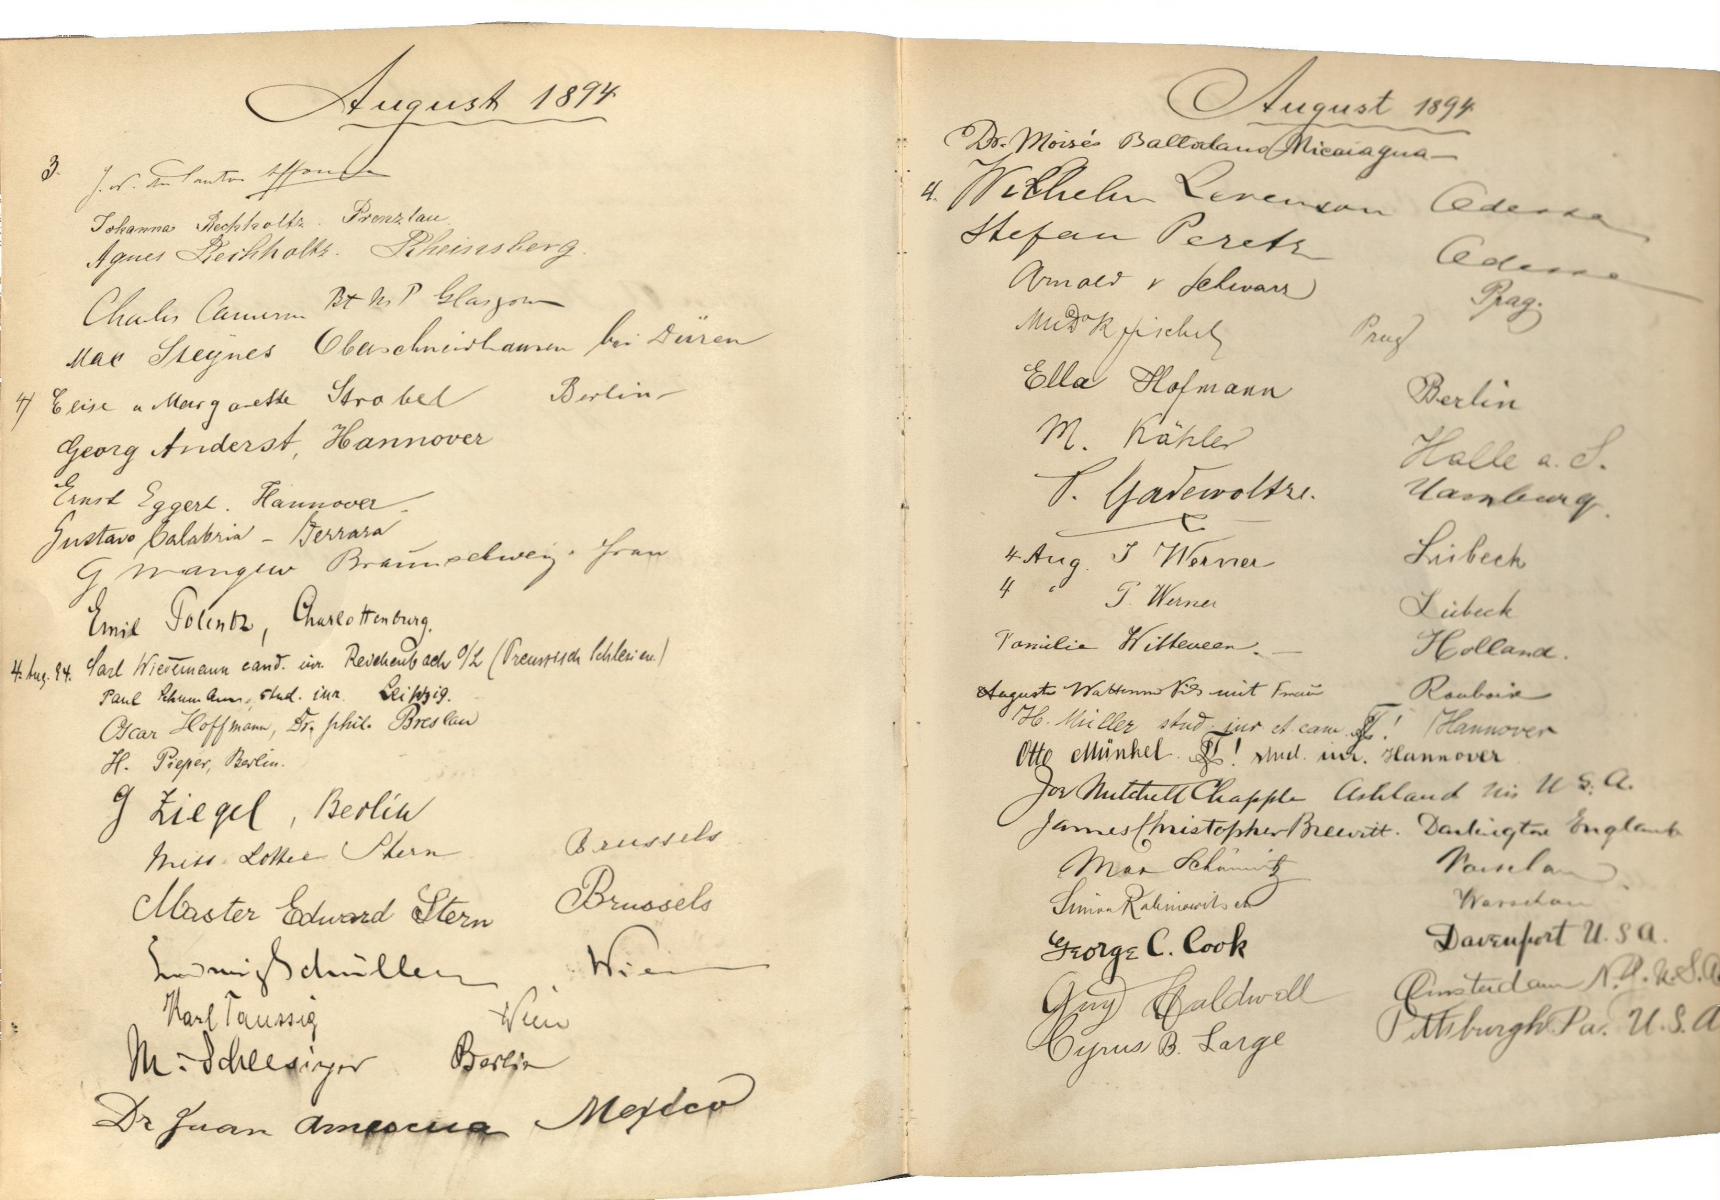 August 1894
3.
Johanna Rechholtz. Prenzlau
Agnes Rechholtz. Rheinsberg.
Charles Cameron Bt M P Glasgow
Max Steynes Oberschneidhausen bei Düren
4) Elise u Margarethe Strobel Berlin
Georg Anderst, Hannover
Ernst Eggert. Hannover.
Gustavo Calabria - Ferrara
G Braunschweig. Frau
Emil Polentz, Charlottenburg.
4. Aug. 94. Carl Wiedemann cand. iur. Reichenbach O/L (Preussisch Schlesien)
Paul Schumann, stud. iur. Leipzig.
Oscar Hoffmann, Dr. phil. Breslau
H. Pieper, Berlin.
G Ziegel, Berlin
Miss Lottie Stern Brussels
Master Edward Stern Brussels
Ludwig Schüller Wien
Karl Taussig Wien
M. Schlesinger Berlin
Dr Juan Amescua Mexico
August 1894
Dr. Moisés Baltodano Nicaragua
4. Wilhelm Levenson Odessa
Stefan Peretz Odessa
Arnold v Schwarz Prag.
Prag
Ella Hofmann Berlin
M. Kähler Halle a. S.
P. Gadewoltze. Hamburg.
4 Aug. J Werner Lübeck
4 " P. Werner Lübeck
Familie Witteveen. Holland.
Auguste Wattinne Fils mit Frau Roubaix
H. Müller stud. iur et cam. ! Hannover
Otto Münkel ! stud. iur. Hannover
Joe Mitchell Chapple Ashland Wis U. S. A.
James Christopher Brewitt. Darlington England
Max Warschau.
Simon Rabinowitsch Warschau
George C. Cook Davenport U. S A.
Guy Caldwell Amsterdam N.Y. U.S.A.
Cyrus B. Large Pittsburgh. Pa. U. S. A